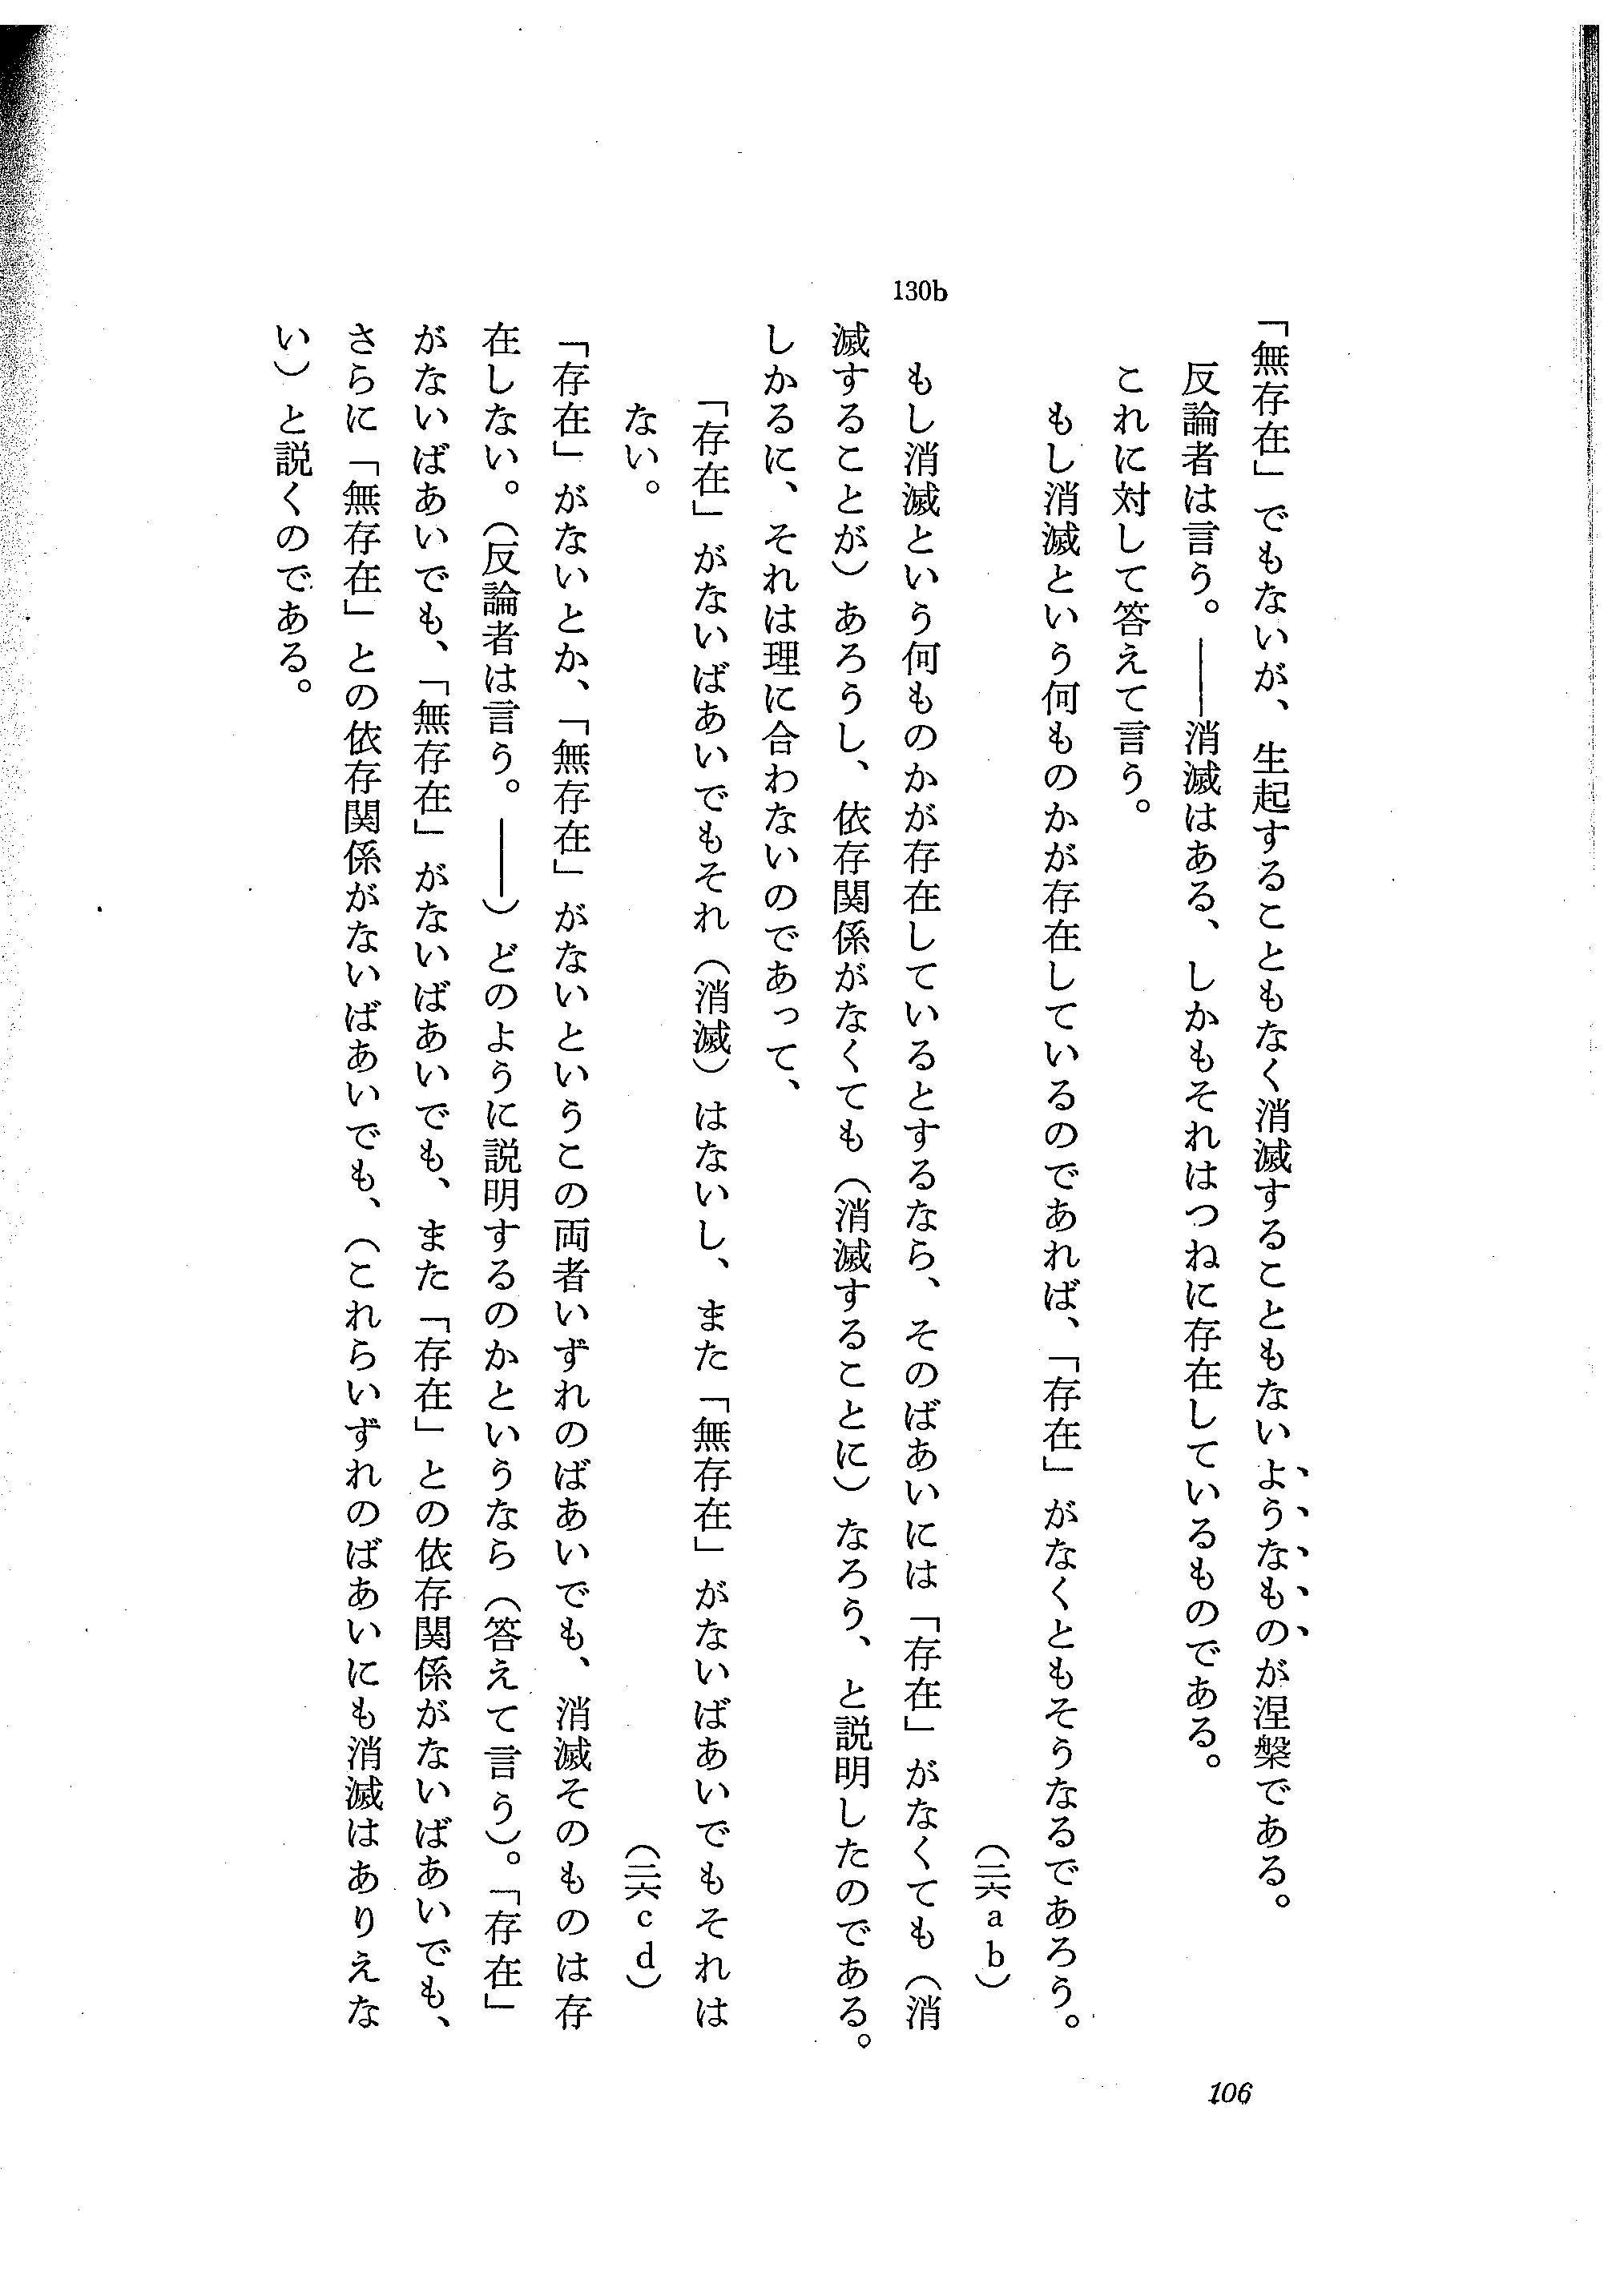 「無存在」でもないが、生起することもなく消滅することもないようなものが涅槃である。
反論者は言う。――消滅はある、しかもそれはつねに存在しているものである。
これに対して答えて言う。
もし消滅という何ものかが存在しているのであれば、「存在」がなくともそうなるであろう。
(二六ab)
130b
もし消滅という何ものかが存在しているとするなら、そのばあいには「存在」がなくても(消
滅することが)あろうし、依存関係がなくても(消滅することに)なろう、と説明したのである。
しかるに、それは理に合わないのであって、
「存在」がないばあいでもそれ(消滅)はないし、また「無存在」がないばあいでもそれは
ない。
(二六cd)
「存在」がないとか、「無存在」がないというこの両者いずれのばあいでも、消滅そのものは存
在しない。(反論者は言う。――)どのように説明するのかというなら(答えて言う)。「存在」
がないばあいでも、「無存在」がないばあいでも、また「存在」との依存関係がないばあいでも、
さらに「無存在」との依存関係がないばあいでも、(これらいずれのばあいにも消滅はありえな
い)と説くのである。
106